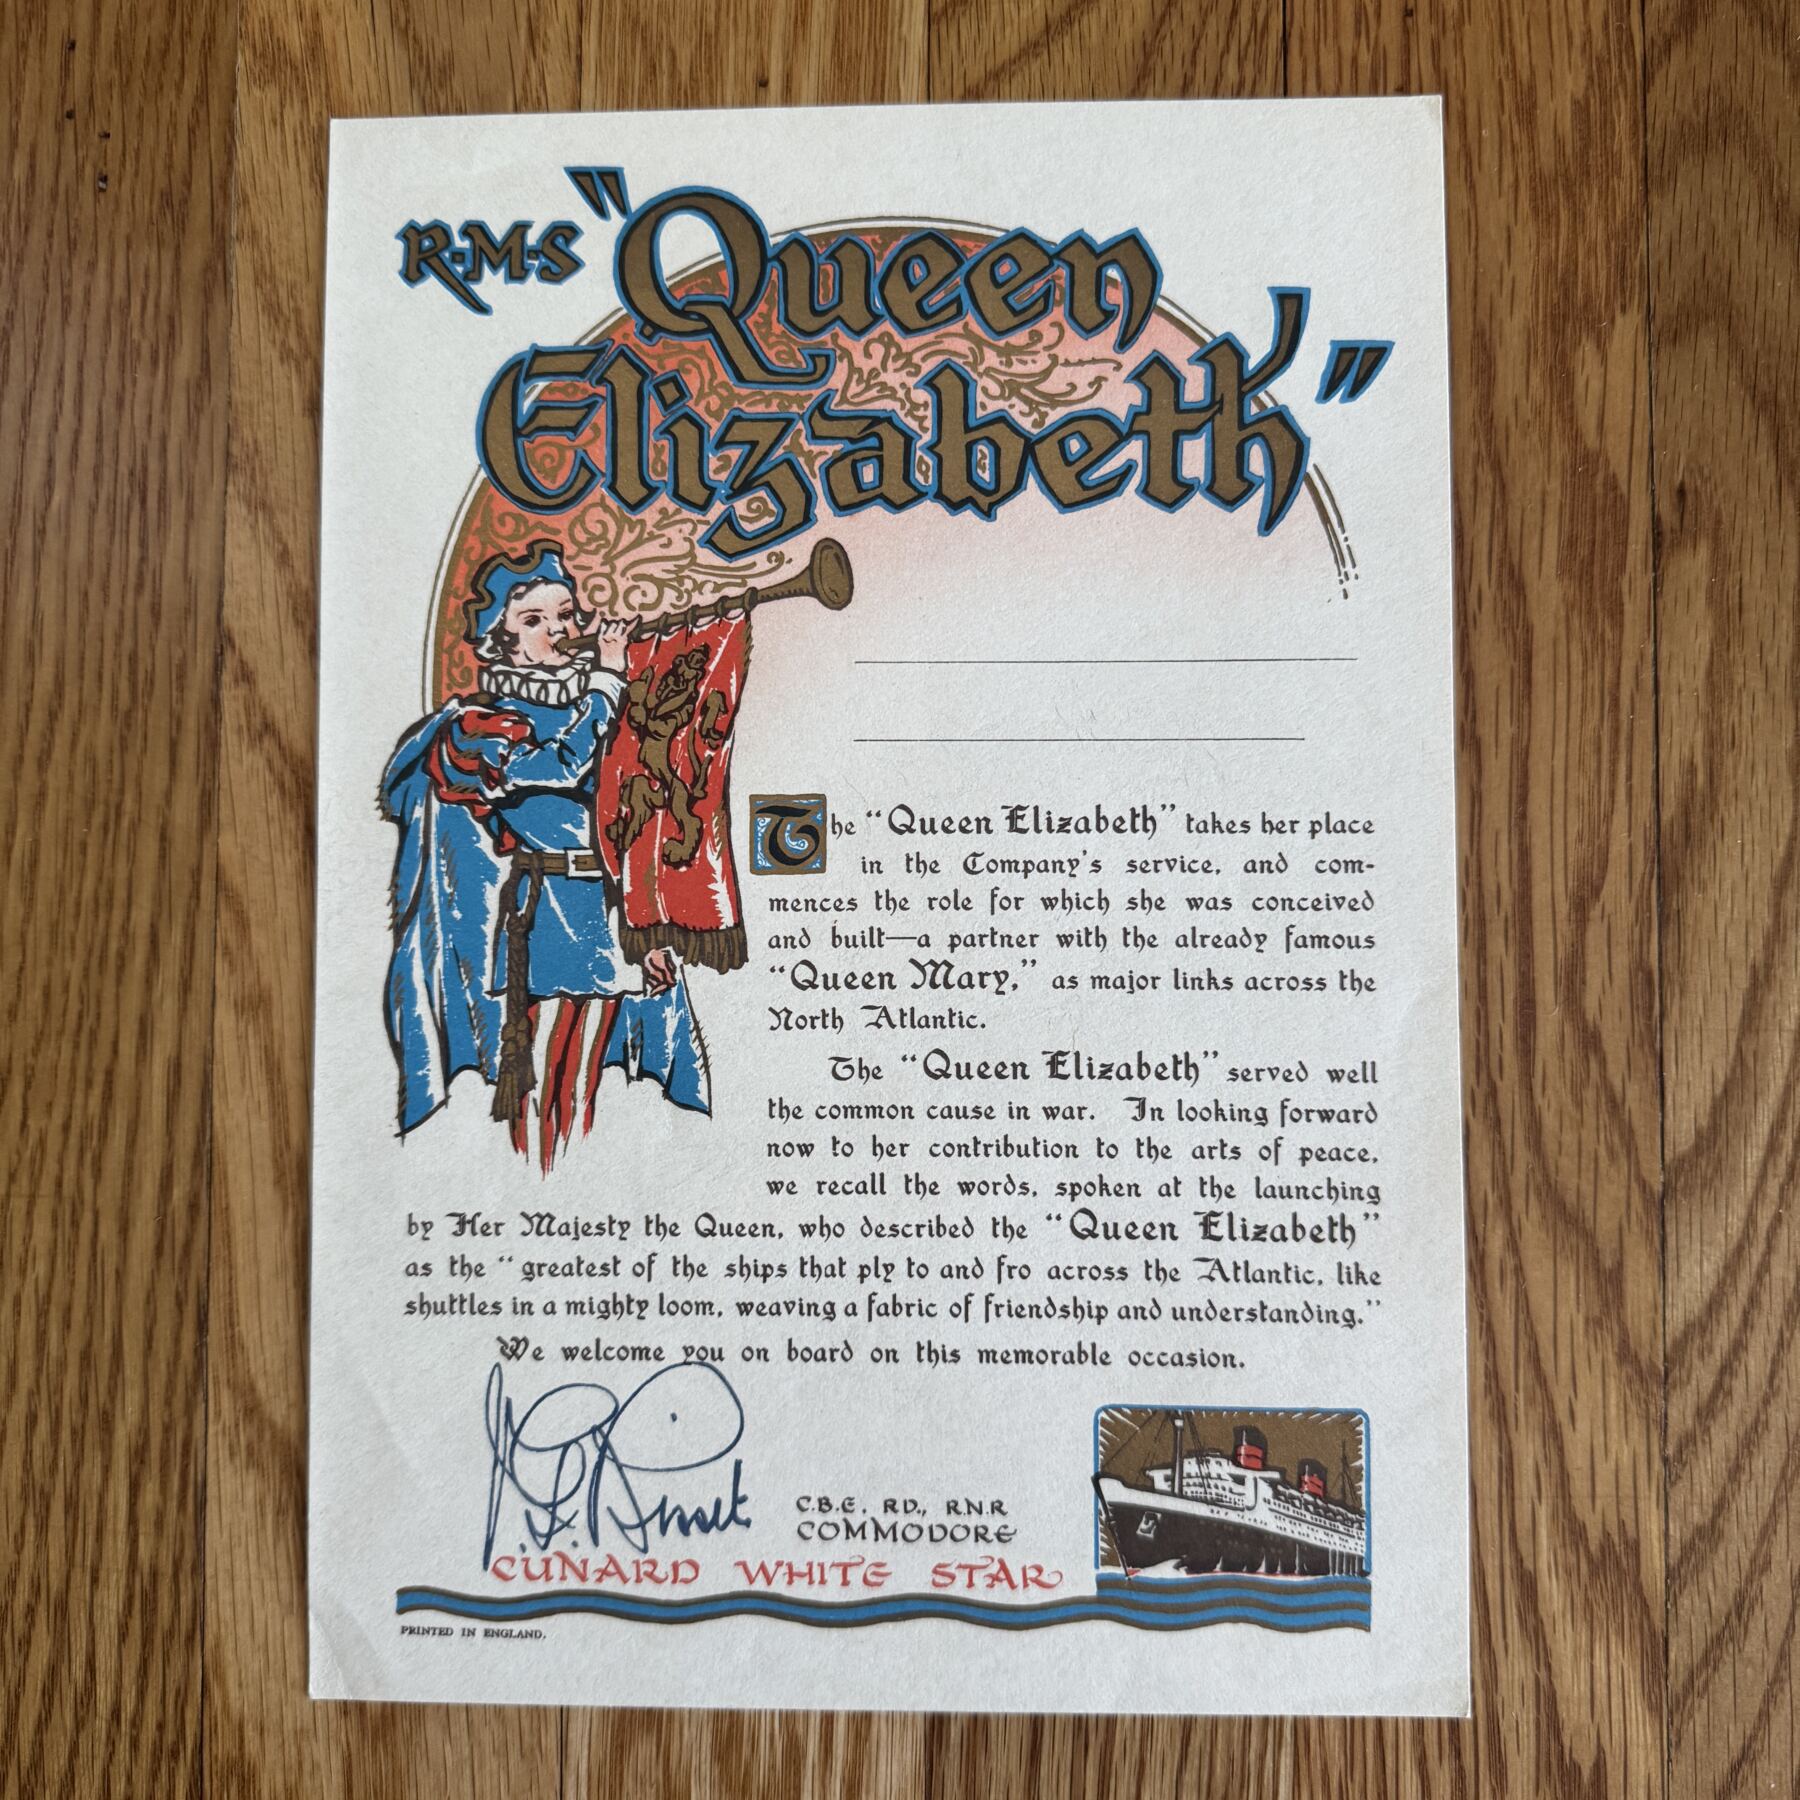 R·M·S "Queen
Elizabeth"
The “Queen Elizabeth” takes her place
in the Company's service, and com-
mences the role for which she was conceived
and built—a partner with the already famous
“Queen Mary,” as major links across the
North Atlantic.
The “Queen Elizabeth” served well
the common cause in war. In looking forward
now to her contribution to the arts of peace,
we recall the words, spoken at the launching
by Her Majesty the Queen, who described the “Queen Elizabeth”
as the “greatest of the ships that ply to and fro across the Atlantic, like
shuttles in a mighty loom, weaving a fabric of friendship and understanding.”
We welcome you on board on this memorable occasion.
C.B.E., RD., R.N.R
COMMODORE
CUNARD WHITE STAR
PRINTED IN ENGLAND.